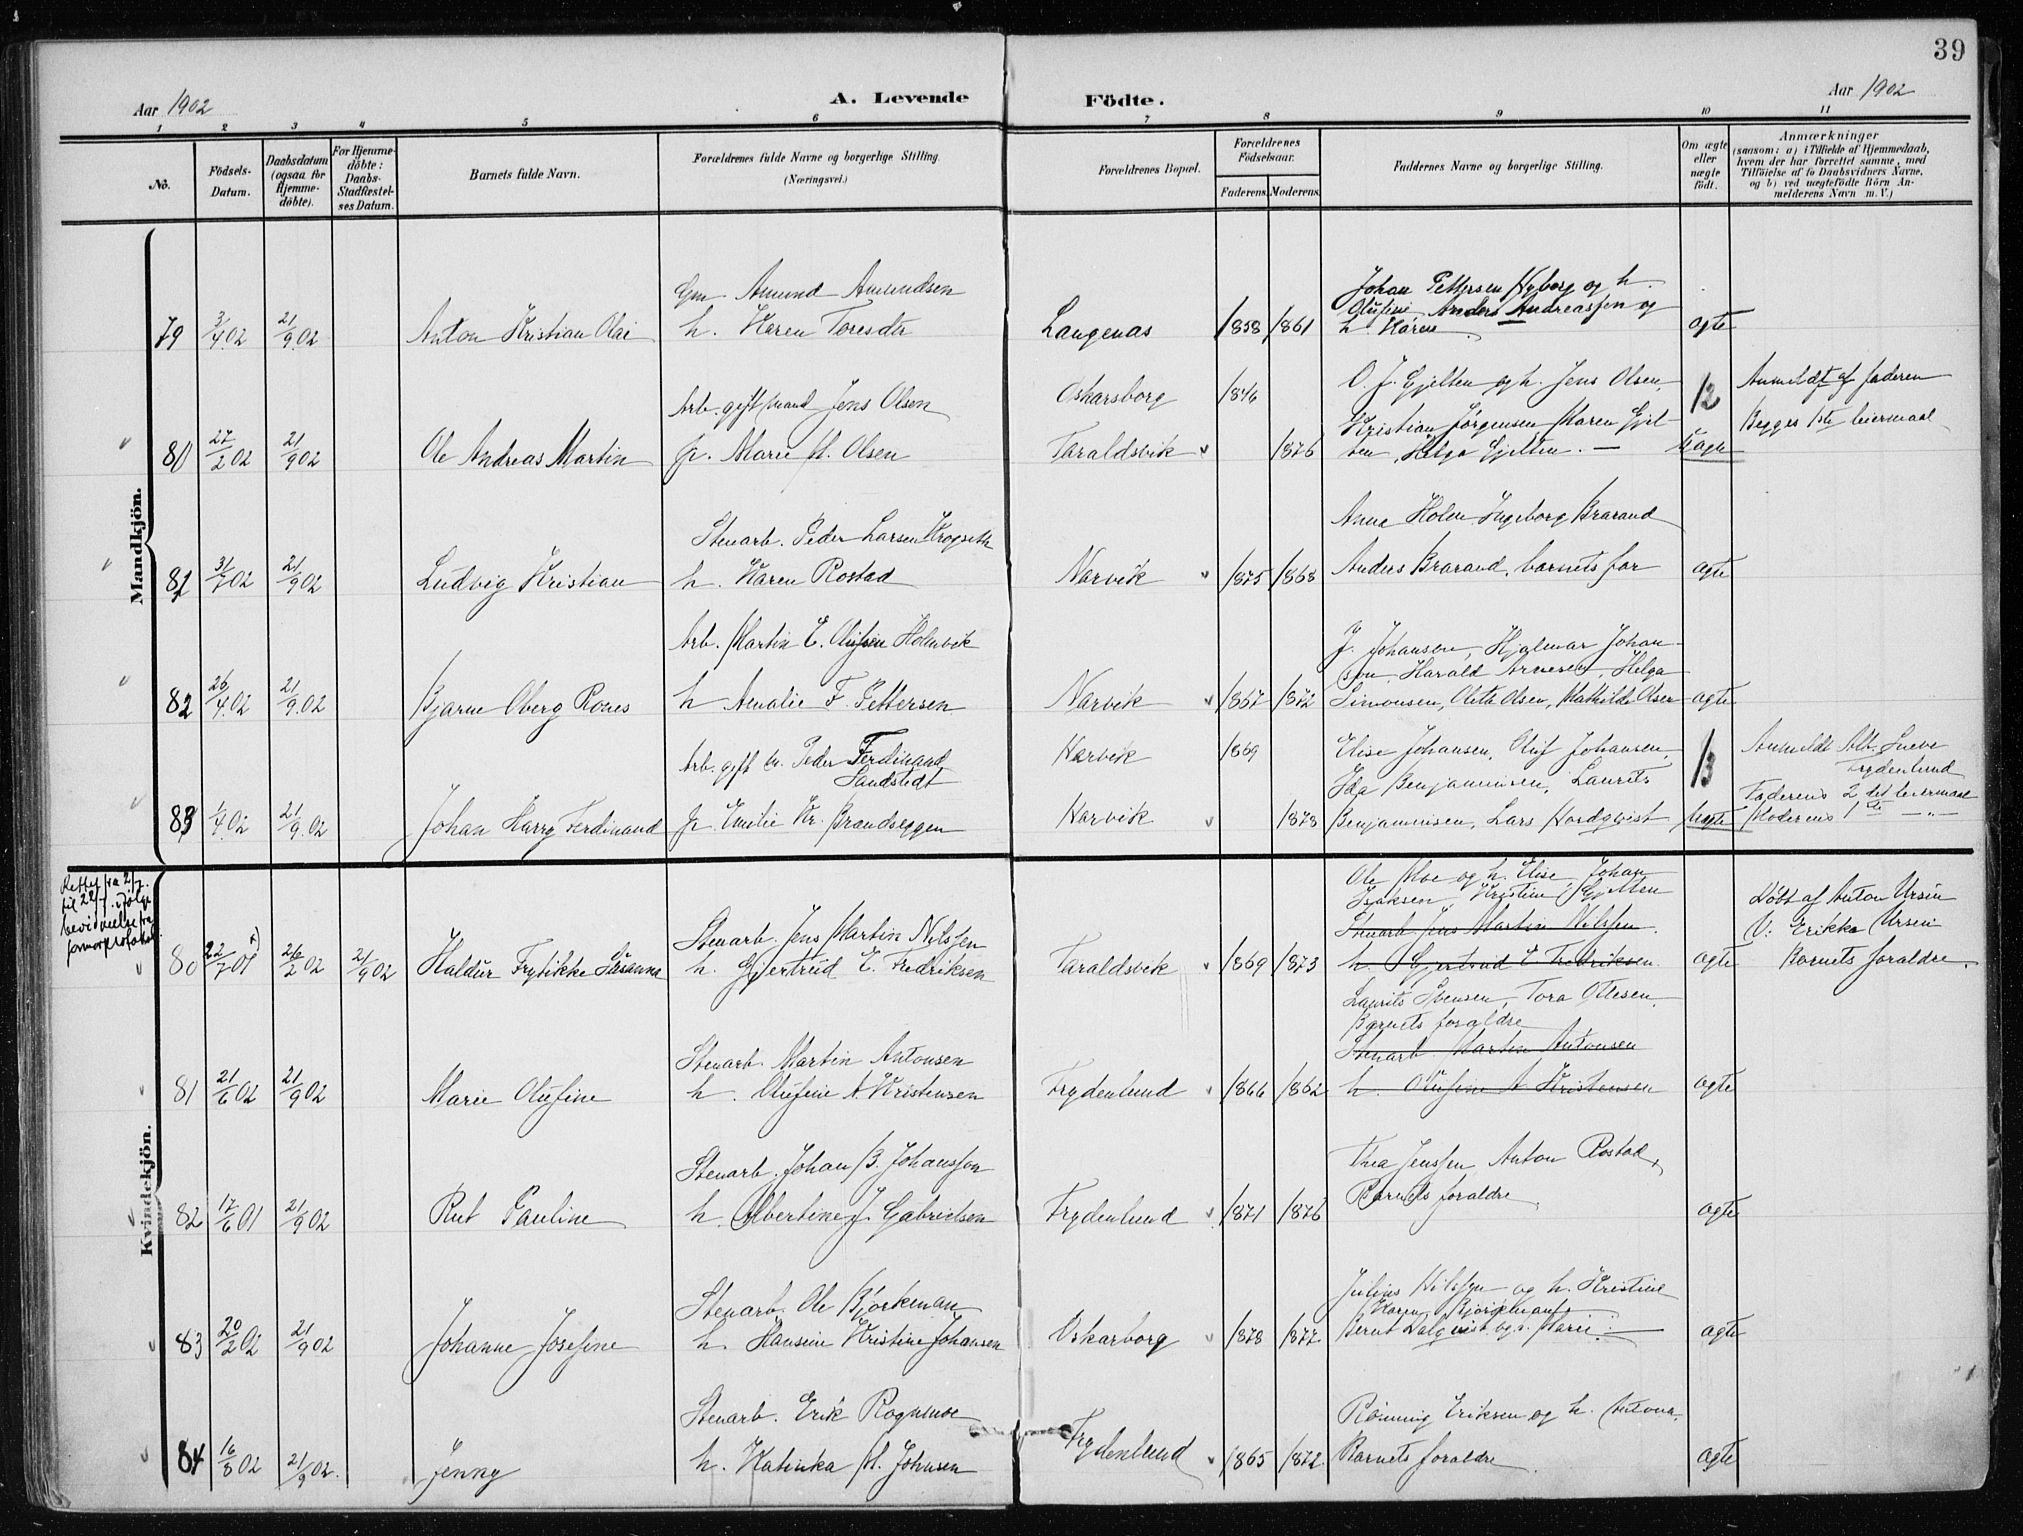 39
Aar 1902
A. Levende Födte.
Aar 1902
1 2 3 4 5 6 7 8 9 10 11
No.
Födsels-Datum.
Daabsdatum (ogsaa for Hjemme-döbte).
For Hjemme-döbte: Daabs-Stadfæstel-ses Datum.
Barnets fulde Navn.
Forældrenes fulde Navne og borgerlige Stilling.
(Næringsvei.)
Forældrenes Bopæl.
Forældrenes Födselsaar.
Faderens. Moderens.
Faddernes Navne og borgerlige Stilling.
Om ægte eller uægte födt.
Anmærkninger
(saasom: a) i Tilfælde af Hjemmedaab,
hvem der har forrettet samme, med
Tilföielse af to Daabsvidners Navne,
og b) ved uægtefödte Börn An-
melderens Navn m. V.)
Mandkjön.
79 3/4 02 21/9 02 Anton Kristian Olai
Gm Amund Amundsen
h. Karen Toresdtr
Langenas 1858 1861
Johan Pettersen Nyborg og h.
Olufine, Anders Andreassen og
h. Karen
ægte
80 27/2 02 21/9 02 Ole Andreas Martin
Arb. gift mand Jens Olsen
p. Marie M. Olsen
Oskarsborg 1846
Taraldsvik 1876
O. J. Gjelten og h. Jens Olsen,
Kristian Jørgensen, Maren Gjel-
ten, Helga Gjelten.
12
Uægte
Anmeldt af faderen
Begges 1ste leiermaal
81 31/7 02 21/9 02 Ludvig Kristian
Stenarb. Peder Larsen Krogseth
h. Karen Rostad
Narvik 1875 1868
Anna Holm, Ingeborg Brarand
Anders Brarand, barnets far
ægte
82 26/4 02 21/9 02 Bjarne Oberg Rones
Arb. Martin E. Olufsen Holmvik
h Amalie F. Pettersen
Narvik 1867 1872
J. Johansen, Hjalmar Johan-
sen, Harald Arnesen, Helga
Simonsen, Oleta Olsen, Mathilde Olsen
ægte
83 1/4 02 21/9 02 Johan Harry Ferdinand
Arb. gift m. Peder Ferdinand
Sandstedt
p Emilie Kr. Brandseggen
Narvik 1869
Narvik 1878
Elise Johansen, Oluf Johansen,
Ida Benjaminsen, Laurits
Benjaminsen, Lars Nordqvist
13
Uægte
Anmeldt Alb. Sneve
Frydenlund
Faderens 2det leiermaal
Moderens 1ste — " —
Kvindekjön.
Rettet fra 2/7
til 22/7 ifølge
bevidnelse fra
jormorprotokol.
80 22/7 01 x) 26/2 02 21/9 02 Haldur Frytikke Susanna
Stenarb. Jens Martin Nilssen
h. Gjertrud E. Fredriksen
Taraldsvik 1869 1873
Ole Moe og h. Elise, Johan
Isaksen, Kristine Gjelten
Stenarb Jens Martin Nilssen
h. Gjertrud E Fredriksen
ægte
Døbt af Anton Ursin
V: Erikka Ursin
Barnets foraldre.
81 21/6 02 21/9 02 Marie Olufine
Stenarb. Martin Antonsen
h. Olufine A Kristensen
Frydenlund 1866 1862
Laurits Svensen, Tora Ottesen,
Barnets foraldre
Stenarb Martin Antonsen
h. Olufine A Kristensen
ægte
82 17/6 01 21/9 02 Rut Pauline
Stenarb. Johan B. Johanssen
h. Albertine J. Gabrielsen
Frydenlund 1871 1876
Thea Jenssen, Anton Rostad,
Barnets foraldre
ægte
83 20/2 02 21/9 02 Johanne Josefine
Stenarb. Ole Bjørkman
h. Hansine Kristine Johansen
Oskarborg 1878 1877
Julius Nilssen og h. Kristine
Karen Bjørkman
Bernt Dalqvist og h. Marie.
ægte
84 16/8 02 21/9 02. Jenny
Stenarb. Erik Rognmoe
h. Katinka M. Johnsen
Frydenlund 1865 1872
Rønning Eriksen og h. Antona,
Barnets foraldre.
ægte